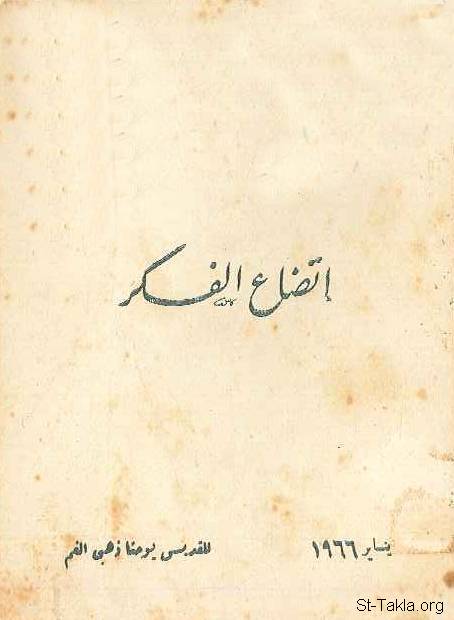 إتضاع الفكر
يناير ١٩٦٦
للقديس يوحنا ذهبى الفم
St-Takla.org